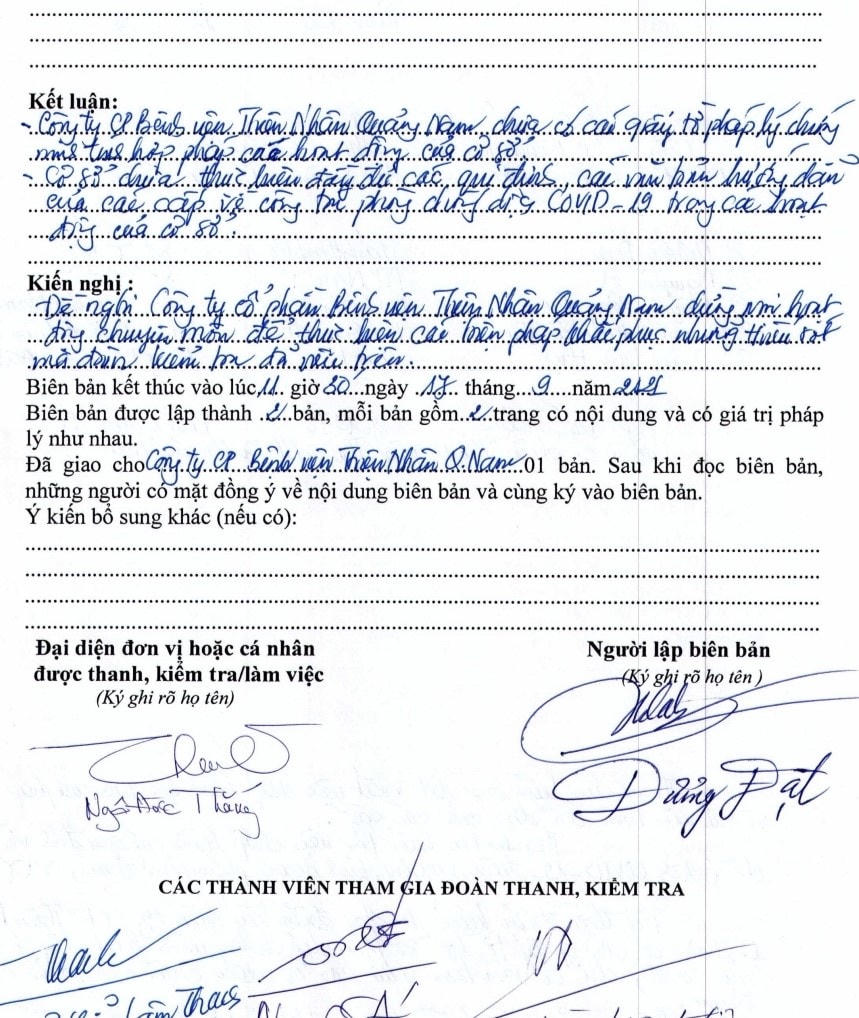 Kết luận:
- Công ty CP Bệnh viện Thiện Nhân Quảng Nam chưa có các giấy tờ pháp lý chứng
minh tính hợp pháp các hoạt động của cơ sở.
- Cơ sở chưa thực hiện đầy đủ các qui định, các văn bản hướng dẫn
của các cấp về công tác phòng chống dịch COVID-19 trong các hoạt
động của cơ sở.
Kiến nghị :
- Đề nghị Công ty cổ phần Bệnh viện Thiện Nhân Quảng Nam dừng mọi hoạt
động chuyên môn để thực hiện các biện pháp khắc phục những thiếu sót
mà đoàn kiểm tra đã nêu trên.
Biên bản kết thúc vào lúc 11 giờ 30 ngày 17 tháng 9 năm 2021
Biên bản được lập thành 2 bản, mỗi bản gồm 2 trang có nội dung và có giá trị pháp
lý như nhau.
Đã giao cho Công ty CP Bệnh viện Thiện Nhân Q.Nam 01 bản. Sau khi đọc biên bản,
những người có mặt đồng ý về nội dung biên bản và cùng ký vào biên bản.
Ý kiến bổ sung khác (nếu có):
Đại diện đơn vị hoặc cá nhân
được thanh, kiểm tra/làm việc
(Ký ghi rõ họ tên)
Người lập biên bản
(Ký ghi rõ họ tên )
Ngô Đức Thắng
Dũng Đạt
CÁC THÀNH VIÊN THAM GIA ĐOÀN THANH, KIỂM TRA